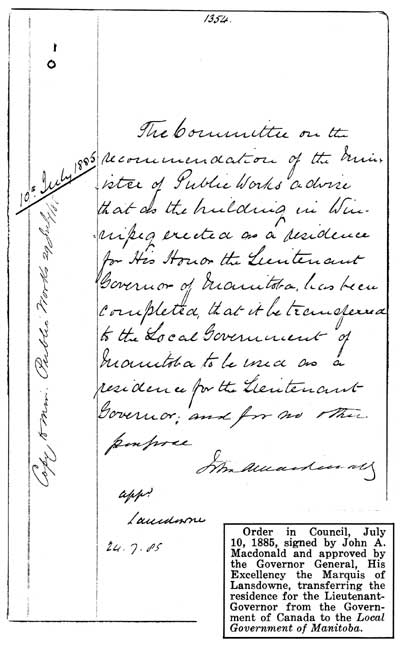 1354.
10th July 1885
Copy to Min. Public Works 29 July/85
The Committee on the
recommendation of the Min-
ister of Public Works advise
that as the building in Win-
nipeg erected as a residence
for His Honor the Lieutenant
Governor of Manitoba, has been
completed, that it be transferred
to the Local Government of
Manitoba to be used as a
residence for the Lieutenant
Governor; and for no other
purpose
John A Macdonald
appd
Lansdowne
24.7.85
Order in Council, July
10, 1885, signed by John A.
Macdonald and approved by
the Governor General, His
Excellency the Marquis of
Lansdowne, transferring the
residence for the Lieutenant-
Governor from the Govern-
ment of Canada to the Local
Government of Manitoba.